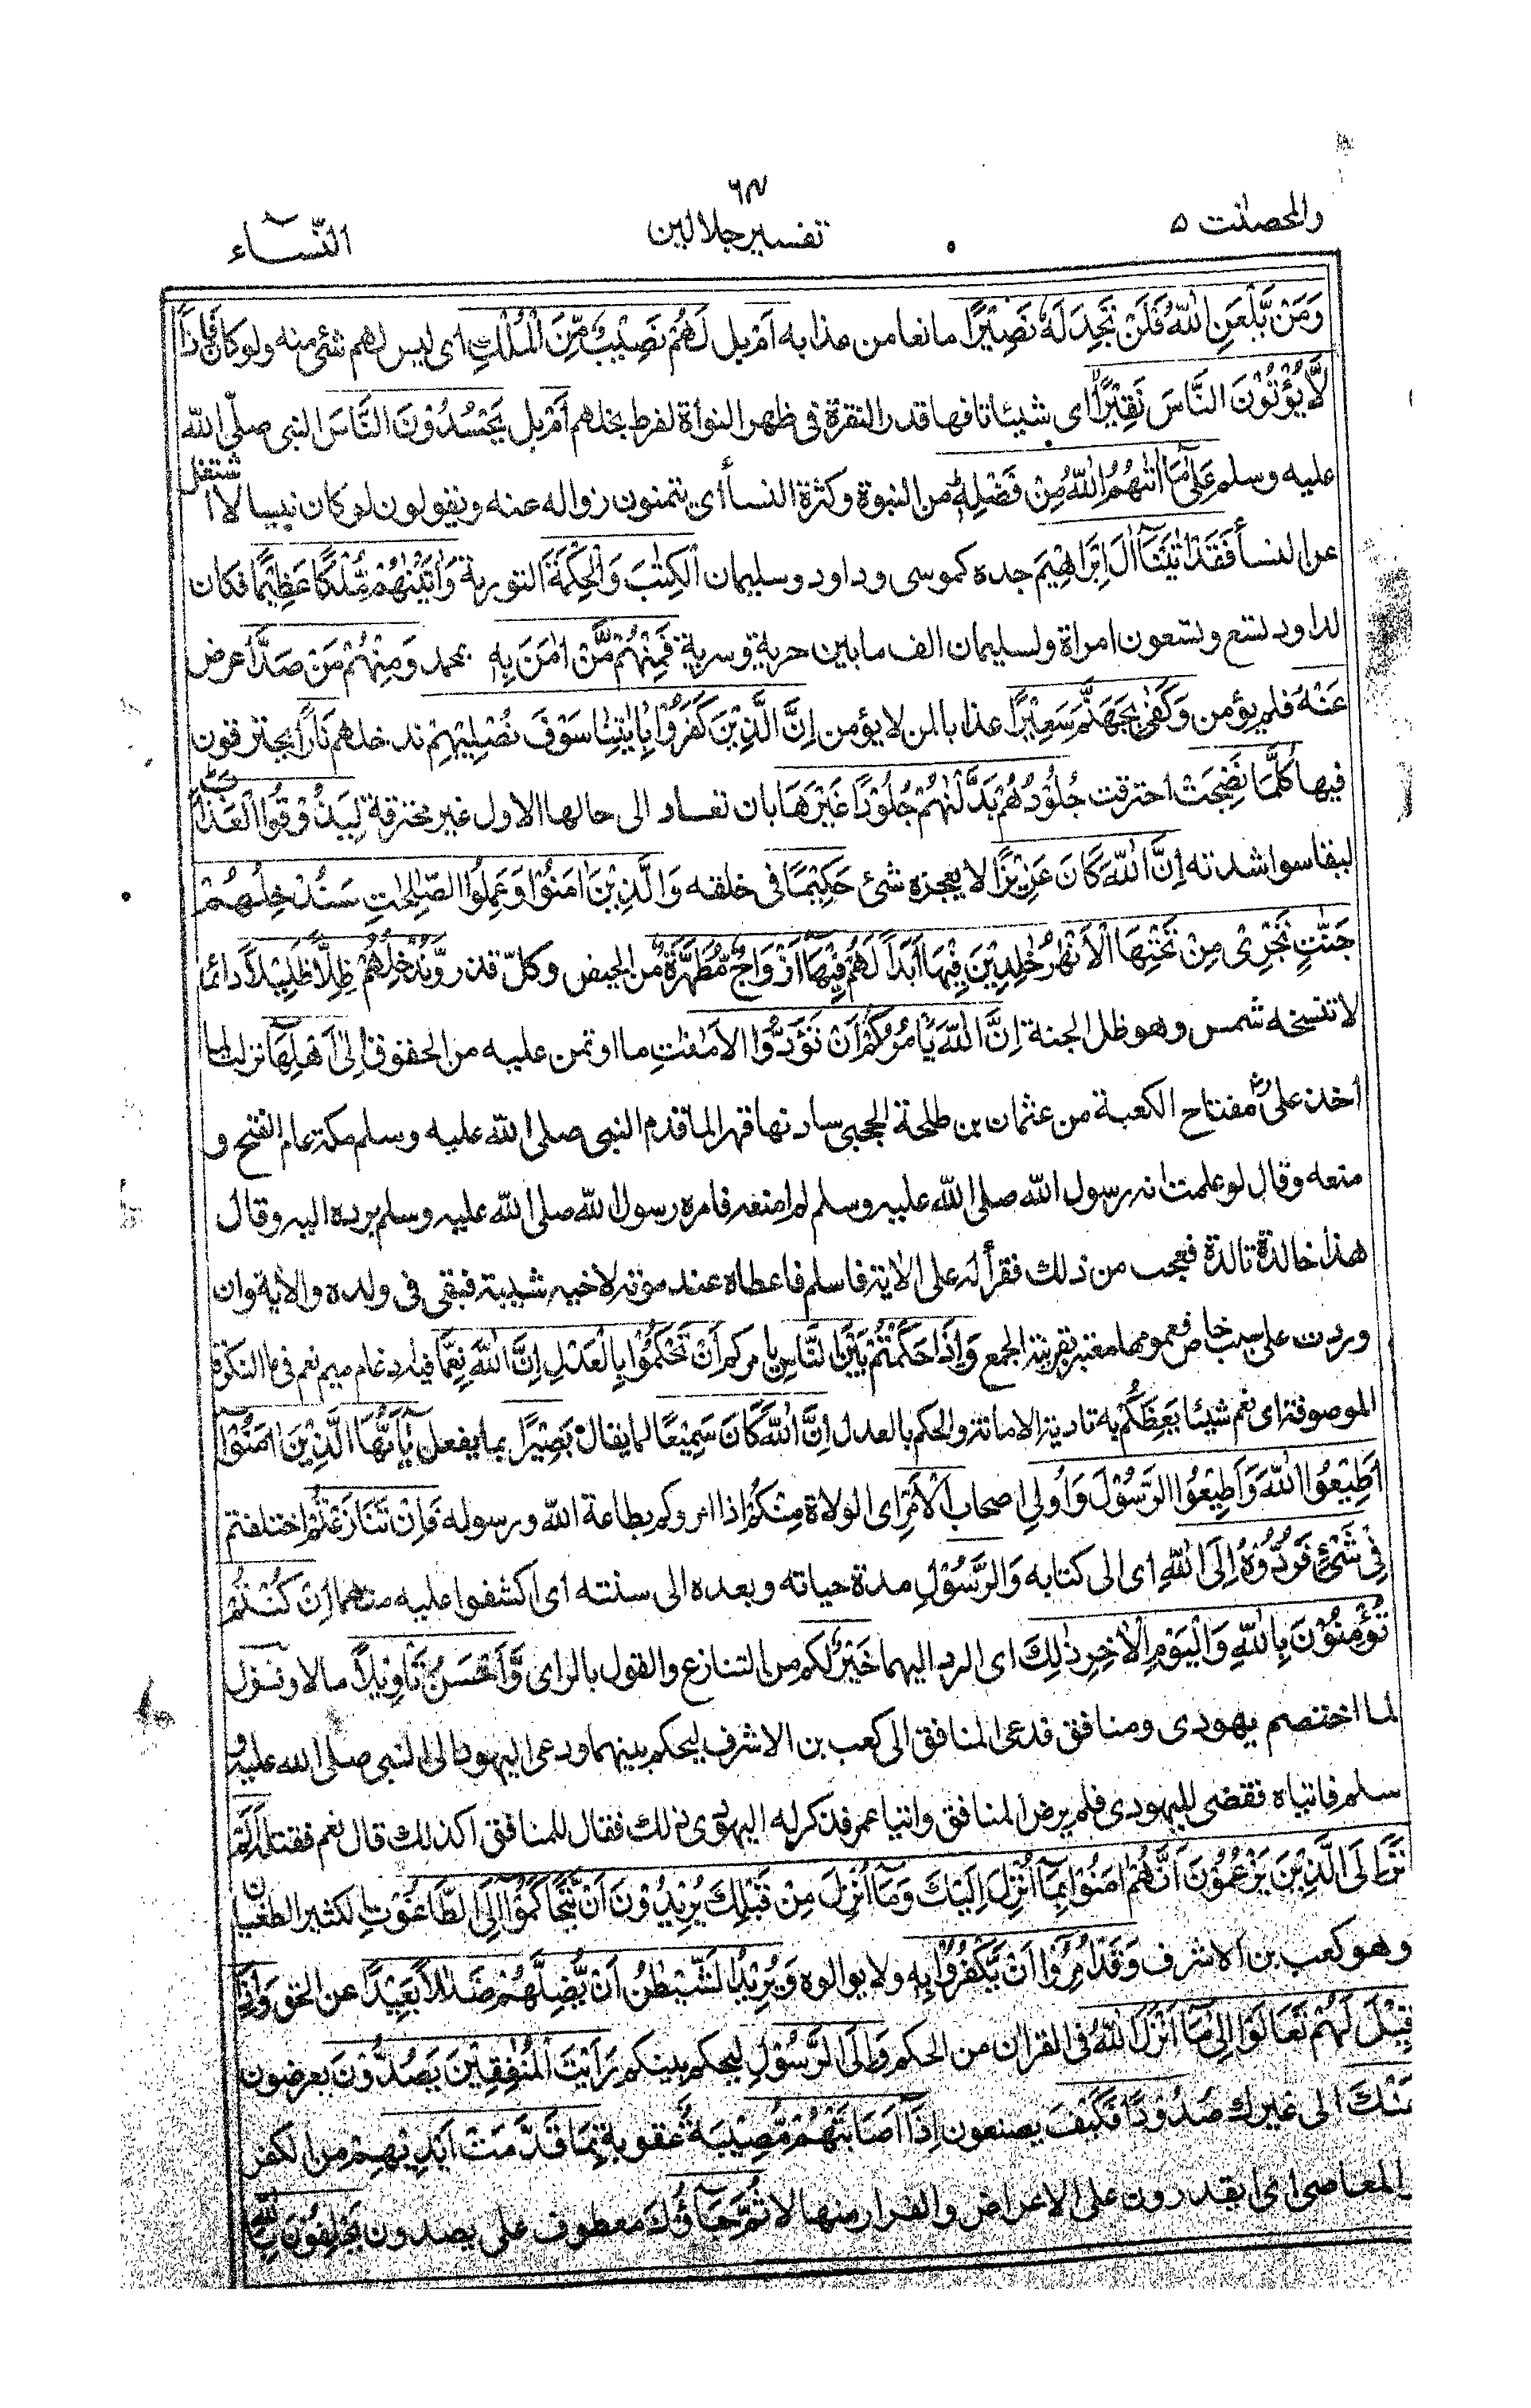 والمحصنت ٥
٦٨
تفسير جلالين
النّسآء
وَمَنْ يَّلْعَنِ اللّٰهُ فَلَنْ تَجِدَ لَهٗ نَصِيْرًا مانعا من عذابه اَمْ بل لَهُمْ نَصِيْبٌ مِّنَ الْمُلْكِ اى ليس لهم شئ منه ولو كان فَاِذًا
لَّا يُؤْتُوْنَ النَّاسَ نَقِيْرًا اى شيئا تافها قدر النقرة فى ظهر النواة لفرط بخلهم اَمْ بل يَحْسُدُوْنَ النَّاسَ النبى صلّى الله
عليه وسلم عَلٰى مَآ اٰتٰهُمُ اللّٰهُ مِنْ فَضْلِهٖ من النبوة وكثرة النسأ اى يتمنون زواله عنه ويقولون لو كان نبيا لا اشتغل
عن النسأ فَقَدْ اٰتَيْنَآ اٰلَ اِبْرٰهِيْمَ جده كموسى وداود وسليمان الْكِتٰبَ وَالْحِكْمَةَ التورية وَاٰتَيْنٰهُمْ مُّلْكًا عَظِيْمًا فكان
لداود تسع وتسعون امراة ولسليمان الف ما بين حرية وسرية فَمِنْهُمْ مَّنْ اٰمَنَ بِهٖ بمحمد وَمِنْهُمْ مَنْ صَدَّ اعرض
عَنْهُ فلم يؤمن وَكَفٰى بِجَهَنَّمَ سَعِيْرًا عذابا لمن لا يؤمن اِنَّ الَّذِيْنَ كَفَرُوْا بِاٰيٰتِنَا سَوْفَ نُصْلِيْهِمْ ندخلهم نَارًا يحترقون
فيها كُلَّمَا نَضِجَتْ احترقت جُلُوْدُهُمْ بَدَّلْنٰهُمْ جُلُوْدًا غَيْرَهَا بان تعاد الى حالها الاول غير محترقة لِيَذُوْقُوا الْعَذَابَ
ليقاسوا شدته اِنَّ اللّٰهَ كَانَ عَزِيْزًا لا يعجزه شئ حَكِيْمًا فى خلقه وَالَّذِيْنَ اٰمَنُوْا وَعَمِلُوا الصّٰلِحٰتِ سَنُدْخِلُهُمْ
جَنّٰتٍ تَجْرِىْ مِنْ تَحْتِهَا الْاَنْهٰرُ خٰلِدِيْنَ فِيْهَآ اَبَدًا لَهُمْ فِيْهَآ اَزْوَاجٌ مُّطَهَّرَةٌ من الحيض وكلّ قذر وَّنُدْخِلُهُمْ ظِلًّا ظَلِيْلًا دائما
لا تنسخه شمس وهو ظل الجنة اِنَّ اللّٰهَ يَاْمُرُكُمْ اَنْ تُؤَدُّوا الْاَمٰنٰتِ ما اوتمن عليه من الحقوق اِلٰٓى اَهْلِهَا نزلت لما
اخذ علىؓ مفتاح الكعبة من عثمان بن طلحة الحجبى سادنها قهرا لما قدم النبى صلى الله عليه وسلم مكة عام الفتح و
منعه وقال لو علمت انه رسول الله صلى الله عليه وسلم لم امنعه فامره رسول الله صلى الله عليه وسلم برده اليه وقال
هذا خالدة تالدة فعجب من ذلك فقرأ له على الاية فاسلم فاعطاه عند موته لاخيه شيبة فبقى فى ولده والاية وان
وردت على سبب خاص فعمومها معتبر بقرينة الجمع وَاِذَا حَكَمْتُمْ بَيْنَ النَّاسِ يامركم اَنْ تَحْكُمُوْا بِالْعَدْلِ اِنَّ اللّٰهَ نِعِمَّا فيه ادغام ميم نعم فى ما النكرة
الموصوفة اى نعم شيئا يَعِظُكُمْ به تادية الامانة والحكم بالعدل اِنَّ اللّٰهَ كَانَ سَمِيْعًا لما يقال بَصِيْرًا بما يفعل يٰٓاَيُّهَا الَّذِيْنَ اٰمَنُوْٓا
اَطِيْعُوا اللّٰهَ وَاَطِيْعُوا الرَّسُوْلَ وَاُولِى اصحاب الْاَمْرِ اى الولاة مِنْكُمْ اذا امروكم بطاعة الله ورسوله فَاِنْ تَنَازَعْتُمْ اختلفتم
فِىْ شَىْءٍ فَرُدُّوْهُ اِلَى اللّٰهِ اى الى كتابه وَالرَّسُوْلِ مدة حياته وبعده الى سنته اى اكشفوا عليه منهما اِنْ كُنْتُمْ
تُؤْمِنُوْنَ بِاللّٰهِ وَالْيَوْمِ الْاٰخِرِ ذٰلِكَ اى الرد اليهما خَيْرٌ لكم من التنازع والقول بالراى وَّاَحْسَنُ تَاْوِيْلًا مالا ونزل
لما اختصم يهودى ومنافق فدعى المنافق الى كعب بن الاشرف ليحكم بينهما ودعى اليهودى الى النبى صلى الله عليه و
سلم فاتياه فقضى لليهودى فلم يرض المنافق واتيا عمر فذكر له اليهودى ذلك فقال للمنافق اكذلك قال نعم فقتله اَلَمْ
تَرَ اِلَى الَّذِيْنَ يَزْعُمُوْنَ اَنَّهُمْ اٰمَنُوْا بِمَآ اُنْزِلَ اِلَيْكَ وَمَآ اُنْزِلَ مِنْ قَبْلِكَ يُرِيْدُوْنَ اَنْ يَّتَحَاكَمُوْٓا اِلَى الطَّاغُوْتِ الكثير الطغيان
وهو كعب بن الاشرف وَقَدْ اُمِرُوْٓا اَنْ يَّكْفُرُوْا بِهٖ ولا يوالوه وَيُرِيْدُ الشَّيْطٰنُ اَنْ يُّضِلَّهُمْ ضَلٰلًا بَعِيْدًا عن الحق وَاِذَا
قِيْلَ لَهُمْ تَعَالَوْا اِلٰى مَآ اَنْزَلَ اللّٰهُ فى القران من الحكم وَاِلَى الرَّسُوْلِ ليحكم بينكم رَاَيْتَ الْمُنٰفِقِيْنَ يَصُدُّوْنَ يعرضون
عَنْكَ الى غيرك صُدُوْدًا فَكَيْفَ يصنعون اِذَآ اَصَابَتْهُمْ مُّصِيْبَةٌ عقوبة بِمَا قَدَّمَتْ اَيْدِيْهِمْ من الكفر
والمعاصى اى ايقدرون على الاعراض والفرار منها لا ثُمَّ جَآءُوْكَ معطوف على يصدون يَحْلِفُوْنَ بِاللّٰهِ